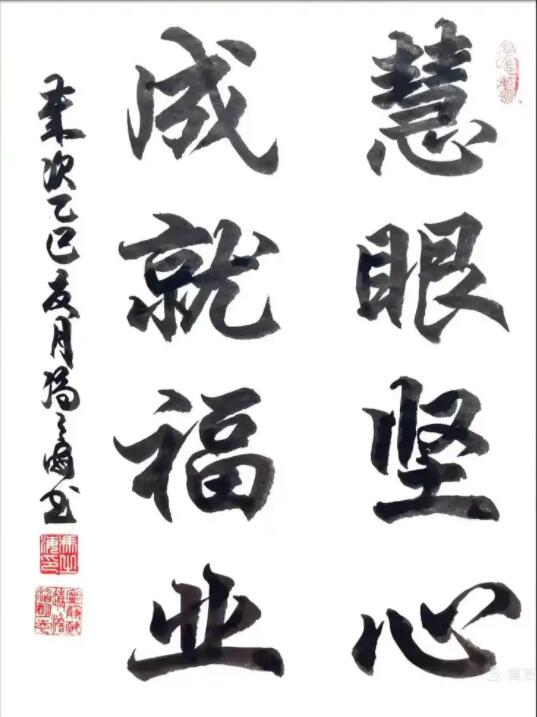 慧眼坚心
成就福业
岁次乙巳夏月冯之海书